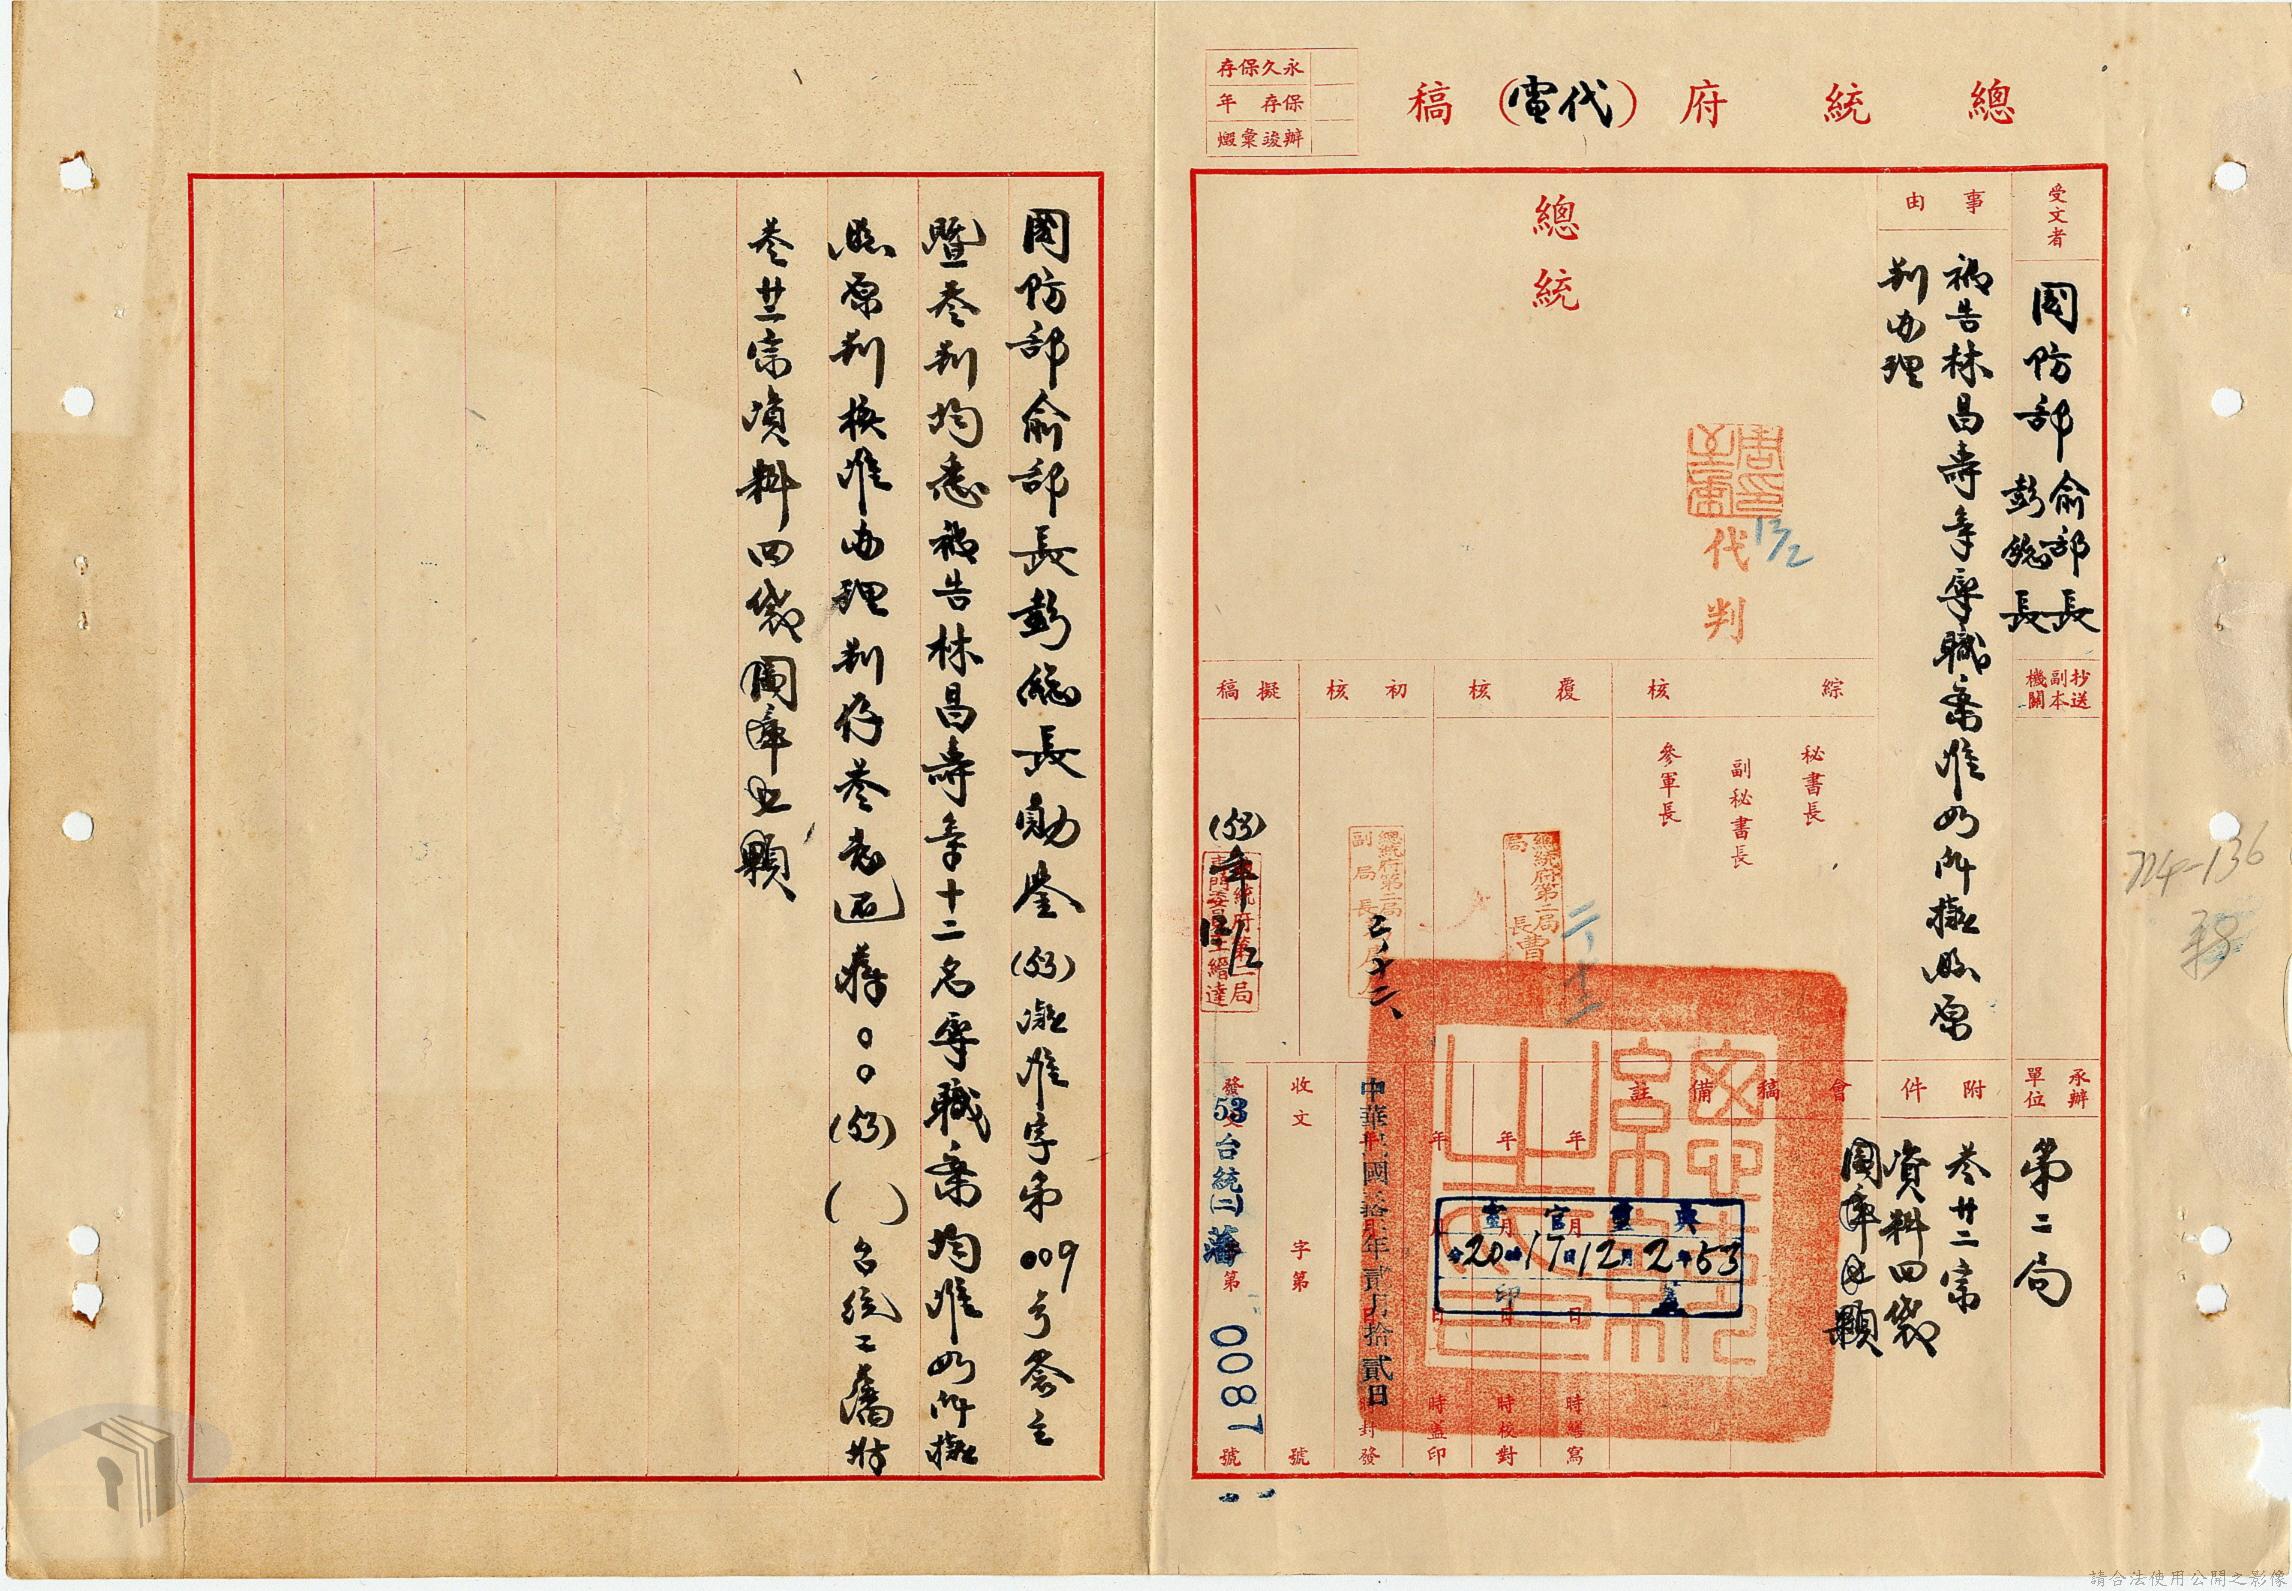 總統府(代電)稿
永久保存
保存 年
辦竣彙燬
受文者
國防部俞部長
彭總長
抄送副本機關
承辦單位
第二局
事由
被告林昌壽等辱職案准如所擬照原
判办理
附件
卷廿二宗
資料四袋
圖章四顆
總統
代判
13/2
綜核
秘書長
副秘書長
參軍長
覆核
總統府第二局
局長曹
二、十二
初核
總統府第二局
副局長
二、十二、
擬稿
(53)年
12/2
會稿備註
年月日時繕寫
年月日時校對
年月日時蓋印
時封發
中華民國 年貳月拾貳日
典璽官
53年2月12日17時20分
蓋印
收文 字第 號
發文 53台統(二)藩第 0087 號
國防部俞部長彭總長勛鑒(53)澈准字第009号簽呈
暨卷判均悉被告林昌壽等十二名辱職案均准如所擬
照原判核准办理判存卷表 蔣○○(53)( )台統二藩附
卷廿二宗資料四袋圖章四顆
724-136
請合法使用公開之影像